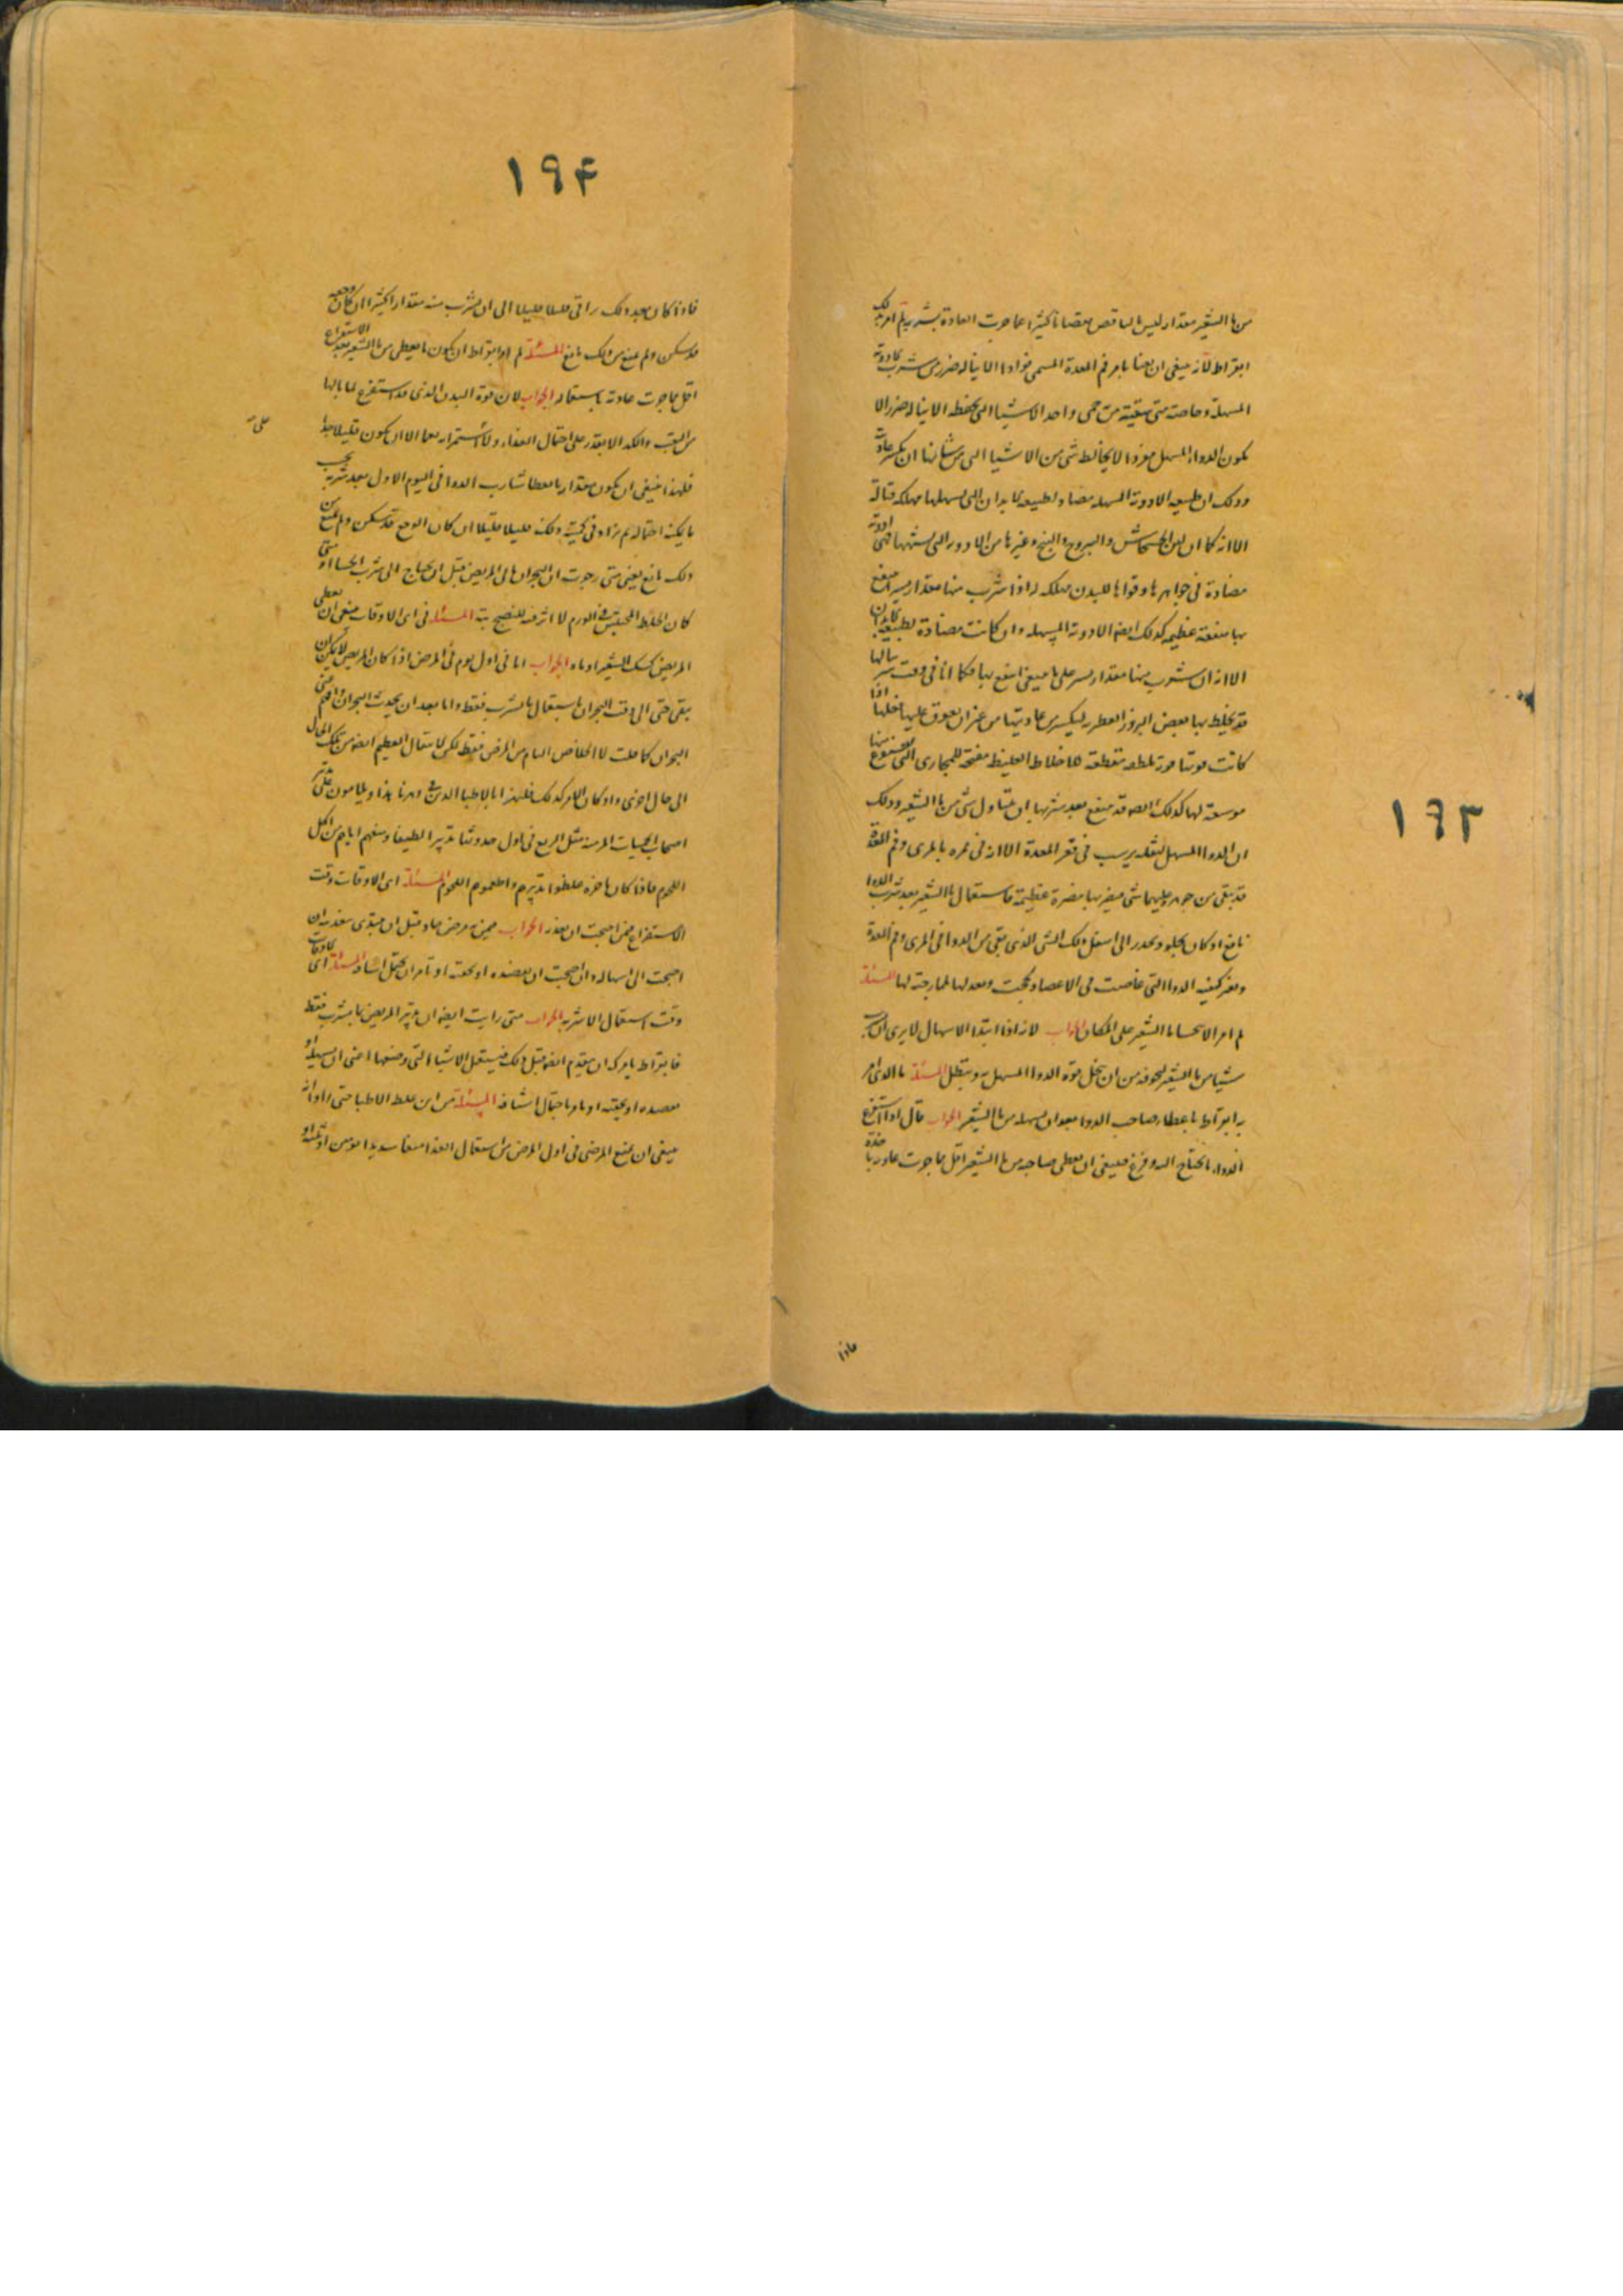 ١٩٣
من ما الشعير مقدار ليس بالناقص نقصانا كثيرا عما جرت العادة بشربه لم امر بذلك
ابقراط لانه ينبغي ان يعنا بامر فم المعدة المسمى فوادا الا يناله ضرر من شرب الادوية
المسهلة وخاصة متى سقيته من حمى واحد الاشيا التي تحفظه الا يناله ضرر الا
يكون الدواء المسهل مفردا لا يخالطه شي من الاشيا التي من شانها ان تكسر عاديته
وذلك ان طبيعة الادوية المسهلة مضادة لطبيعة الابدان التي تسهلها مهلكة قتالة
الا انه كما ان لبن الخشخاش واليبروح والبنج وغيرها من الادوية التي
مضادة في جواهرها وقواها للبدن مهلكة له اذا شرب منها مقدار يسير انتفع
بها منفعة عظيمة كذلك ايضا الادوية المسهلة وان كانت مضادة لطبيعة الابدان
الا انه ان شرب منها مقدار يسير على ما ينبغي انتفع بها فكما انا في وقت شربنا لها
قد نخلط بها بعض البزور العطرية ليكسر من عاديتها من غير ان يعوق عليها فعلها اذا
كانت قوتها قوة ملطفة مقطعة للاخلاط الغليظة مفتحة للمجاري التي
موسعة لها كذلك ايضا قد ينتفع بعد شربها بان يتناول شي من ما الشعير وذلك
ان الدوا المسهل لثقله يرسب في قعر المعدة الا انه في ممره بالمرى وفم المعدة
قد يبقى من جوهره عليهما شي فيضر بها مضرة عظيمة فاستعمال ما الشعير بعد شرب الدوا
نافع اذ كان يجلو ويحدر الى اسفل ذلك الشي الذي بقي من الدوا في المرى وفم المعدة
ويغير كيفية الدوا التي غاصت في الاعضا ولحجت ويعدلها لممازجته لها المسئلة
لم امر الا يحسا ما الشعير على المكان الجواب لانه اذا ابتدا الاسهال لا يرى ان
شيا من ما الشعير لخوفه من ان تنحل قوة الدوا المسهل به وتبطل المسئلة ما الذي امر
به ابقراط باعطاء صاحب الدوا بعد ان يسهله من ما الشعير الجواب قال اذا استفرغ
الدواء ما يحتاج اليه وفرغ فينبغي ان يعطى صاحبه من ما الشعير اقل مما جرت عادته
فاذا
١٩٤
فاذا كان بعد ذلك زاد في قليلا قليلا الى ان يشرب منه مقدارا كثيرا ان كان وجعه
قد سكن ولم يمنع من ذلك مانع المسئلة لم امر ابقراط ان يكون ما يعطى من ما الشعير بعد الاستفراغ
اقل مما جرت عادته باستعماله الجواب لان قوة البدن الذي قد استفرغ لما نالها
من التعب والكد لا تقدر على احتمال الغذاء ولا استمراءه معا الا ان يكون قليلا جدا
فلهذا ينبغي ان يكون مقدار ما يعطا شارب الدوا في اليوم الاول بعد شربه بحسب
ما يمكنه احتماله ثم يزاد في كميته وذلك قليلا قليلا ان كان الوجع قد سكن ولم يمنع من
ذلك مانع يعني متى رجوت ان البحران ياتي المريض قبل ان يحتاج الى شرب الحسا او متى
كان الخلط المحتبس في الورم لا اثر فيه للنضج بتة المسئلة في اى الاوقات ينبغي ان يعطى
المريض كشك الشعير او ماءه الجواب اما في اول يوم في المرض اذا كان المريض لا يمكن ان
يبقى حتى الى وقت البحران باستعمال ما يشرب فقط واما بعد ان يحدث البحران واعني
البحران كما قلت لا الخلاص التام من المرض فقط لكن الانتقال العظيم ايضا من تلك الحال
الى حال اخرى واذ كان الامر كذلك فلهذا امر الاطبا الذين في دهرنا هذا
اصحاب الحميات المزمنة مثل الربع في اول حدوثها تدبيرا لطيفا ومنعهم اياهم من اكل
اللحوم فاذا كان باخره غلظوا تدبيرهم واطعموهم اللحوم المسئلة اى الاوقات وقت
الاستفراغ فمن احتجت ان يغذا الجواب فيمن به مرض حاد قبل ان يبتدى بغذيه ان
احتجت الى اسهاله وان احتجت ان تفصده او تحقنه او تامر ان يحتمل اشيافة المسئلة اى الاوقات
وقت استعمال الاشربة الجواب متى رايت ايضا ان تدبر المريض بما يشرب فقط
فابقراط يامرك ان تقدم ايضا قبل ذلك فتستعمل الاشيا التي وصفها اعني ان تسهله او
تفصده او تحقنه او تامره باحتمال اشيافة المسئلة من اين غلط الاطبا حتى راوا انه
ينبغي ان تمنع المرضى في اول المرض من استعمال الغذا منعا شديدا يومين او ثلثة او